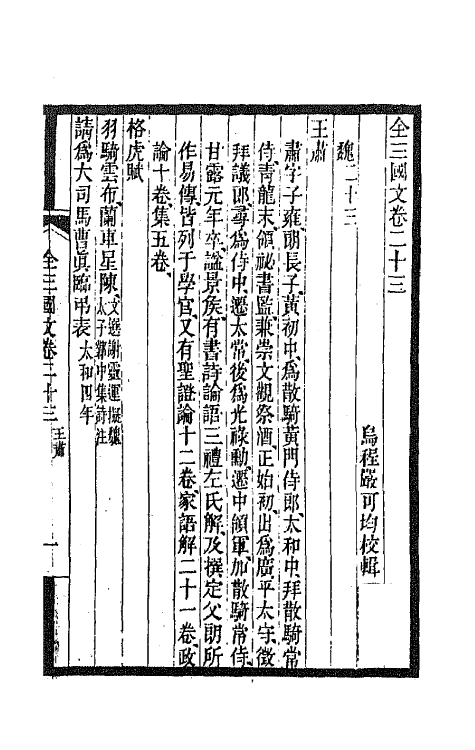 全三國文卷二十三
烏程嚴可均校輯
魏二十三
王肅
肅字子雍朗長子黃初中爲散騎黃門侍郎太和中拜散騎常
侍青龍末領祕書監兼崇文觀祭酒正始初出爲廣平太守徵
拜議郎尋爲侍中遷太常後爲光祿勳遷中領軍加散騎常侍
甘露元年卒諡景侯有書詩論語三禮左氏解及撰定父朗所
作易傳皆列于學官又有聖證論十二卷家語解二十一卷政
論十卷集五卷
格虎賦
羽騎雲布蘭車星陳文選謝靈運擬魏太子鄴中集詩注
請爲大司馬曹眞臨弔表太和四年
全三國文卷二十三 王肅 一